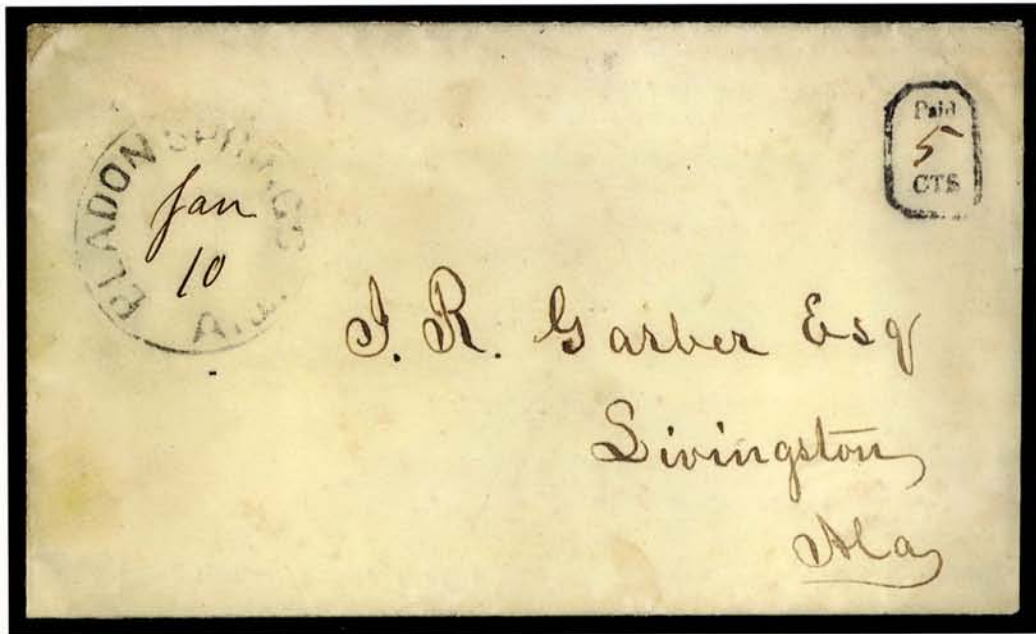 BLADON SPRINGS
Jan
10
Ala.
Paid
5
CTS
J. R. Garber Esq
Livingston
Ala